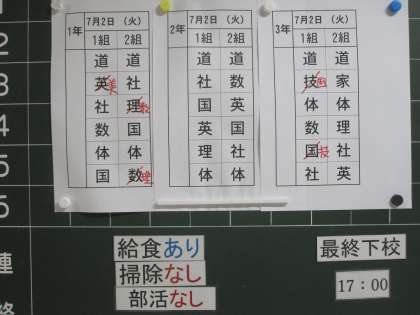 1年 7月2日 (火)
1組 2組
道 道
英美 社
社 理数
数 国
体 体
国 数理
2年 7月2日 (火)
1組 2組
道 道
社 数
国 英
英 国
理 社
体 体
3年 7月2日 (火)
1組 2組
道 道
技国 家
体 体
数 理
国技 社
社 英
2
3
4
5
6
連
給食あり
掃除なし
部活なし
最終下校
17：00